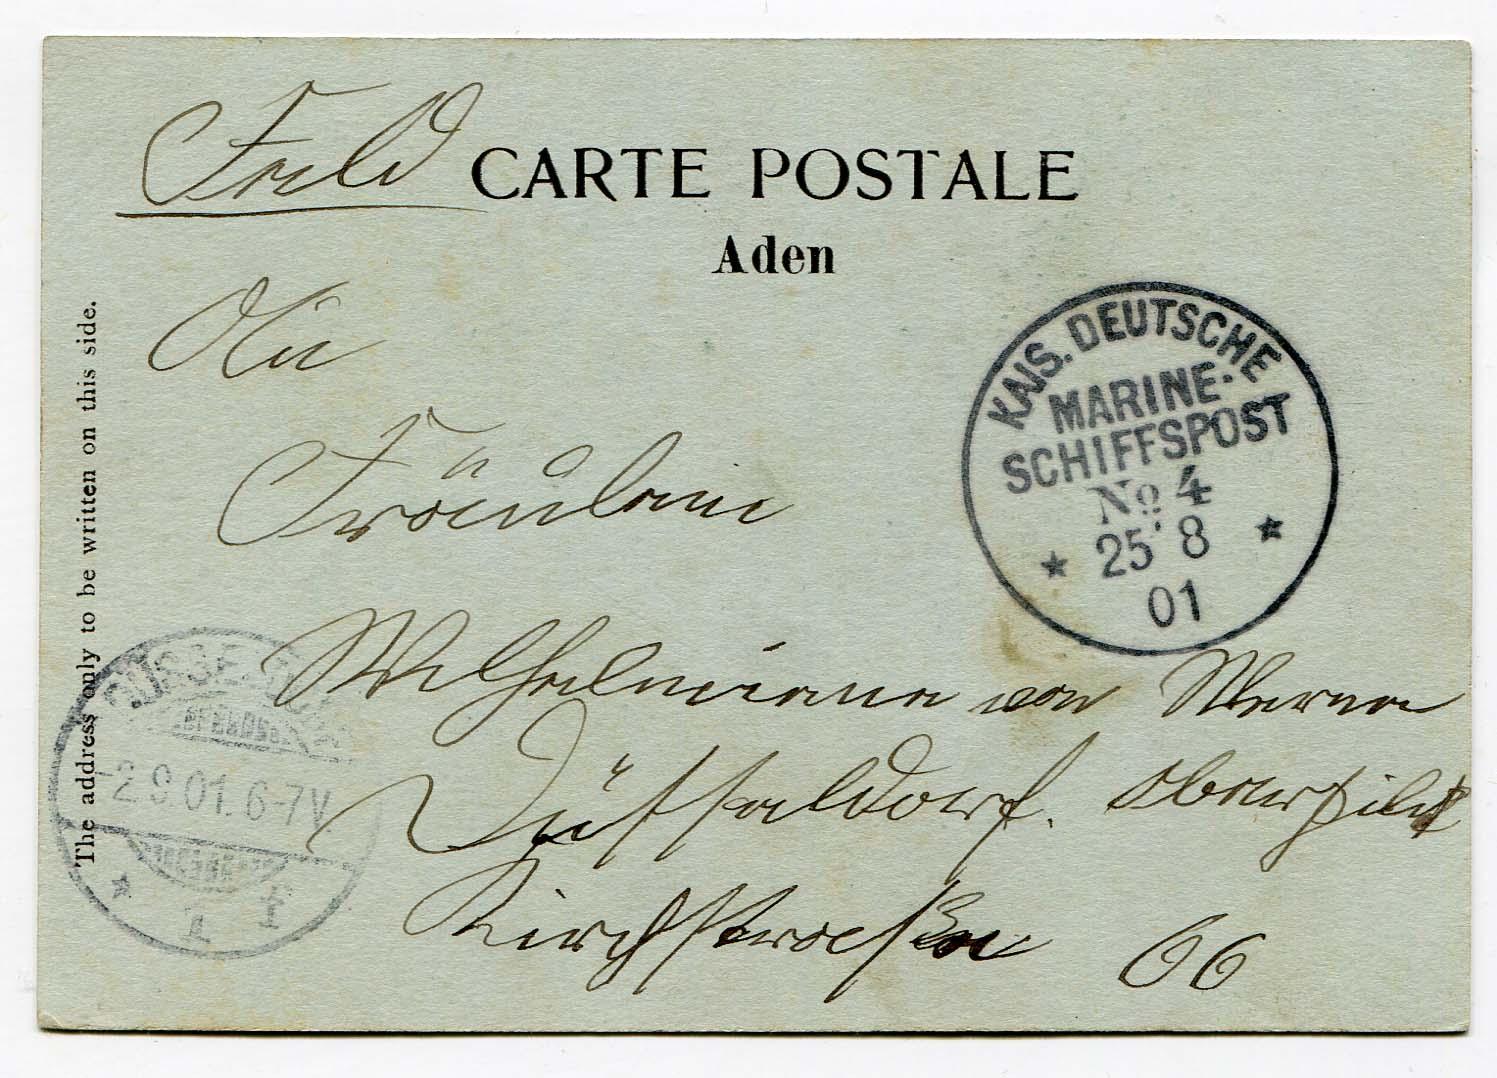 Feld
CARTE POSTALE
Aden
An
Fräulein
Wilhelmine von Werner
Düsseldorf. Oberbilk
Kirchstraße 66
The address only to be written on this side.
KAIS. DEUTSCHE
MARINE-
SCHIFFSPOST
No 4
25 8
01
DÜSSELDORF
-2.9.01.6-7V.
1 f